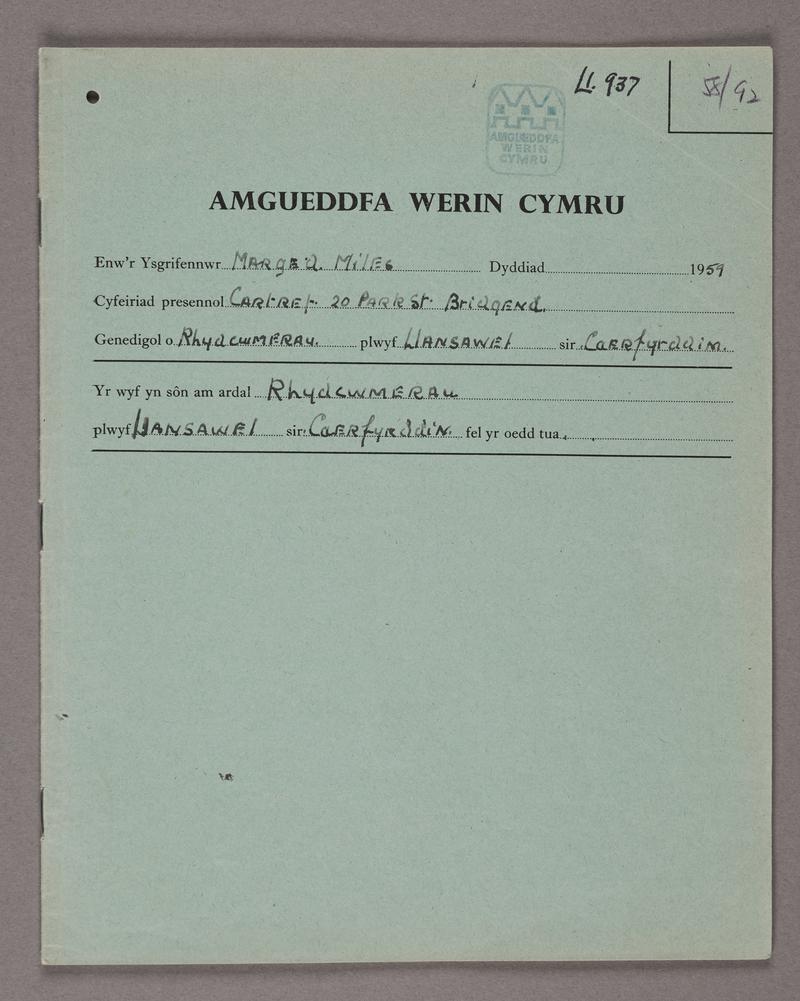 Ll. 937
92
AMGUEDDFA
WERIN
CYMRU
AMGUEDDFA WERIN CYMRU
Enw'r Ysgrifennwr MARgEd. MilES Dyddiad 1959
Cyfeiriad presennol CARtREf. 20 PARK St. BridgENd.
Genedigol o RhydcwmERAu. plwyf LlANSAWEl sir CaERfyrddiN.
Yr wyf yn sôn am ardal RhydcwmERAu
plwyf LlANSAWEl sir CaERfyRddiN. fel yr oedd tua